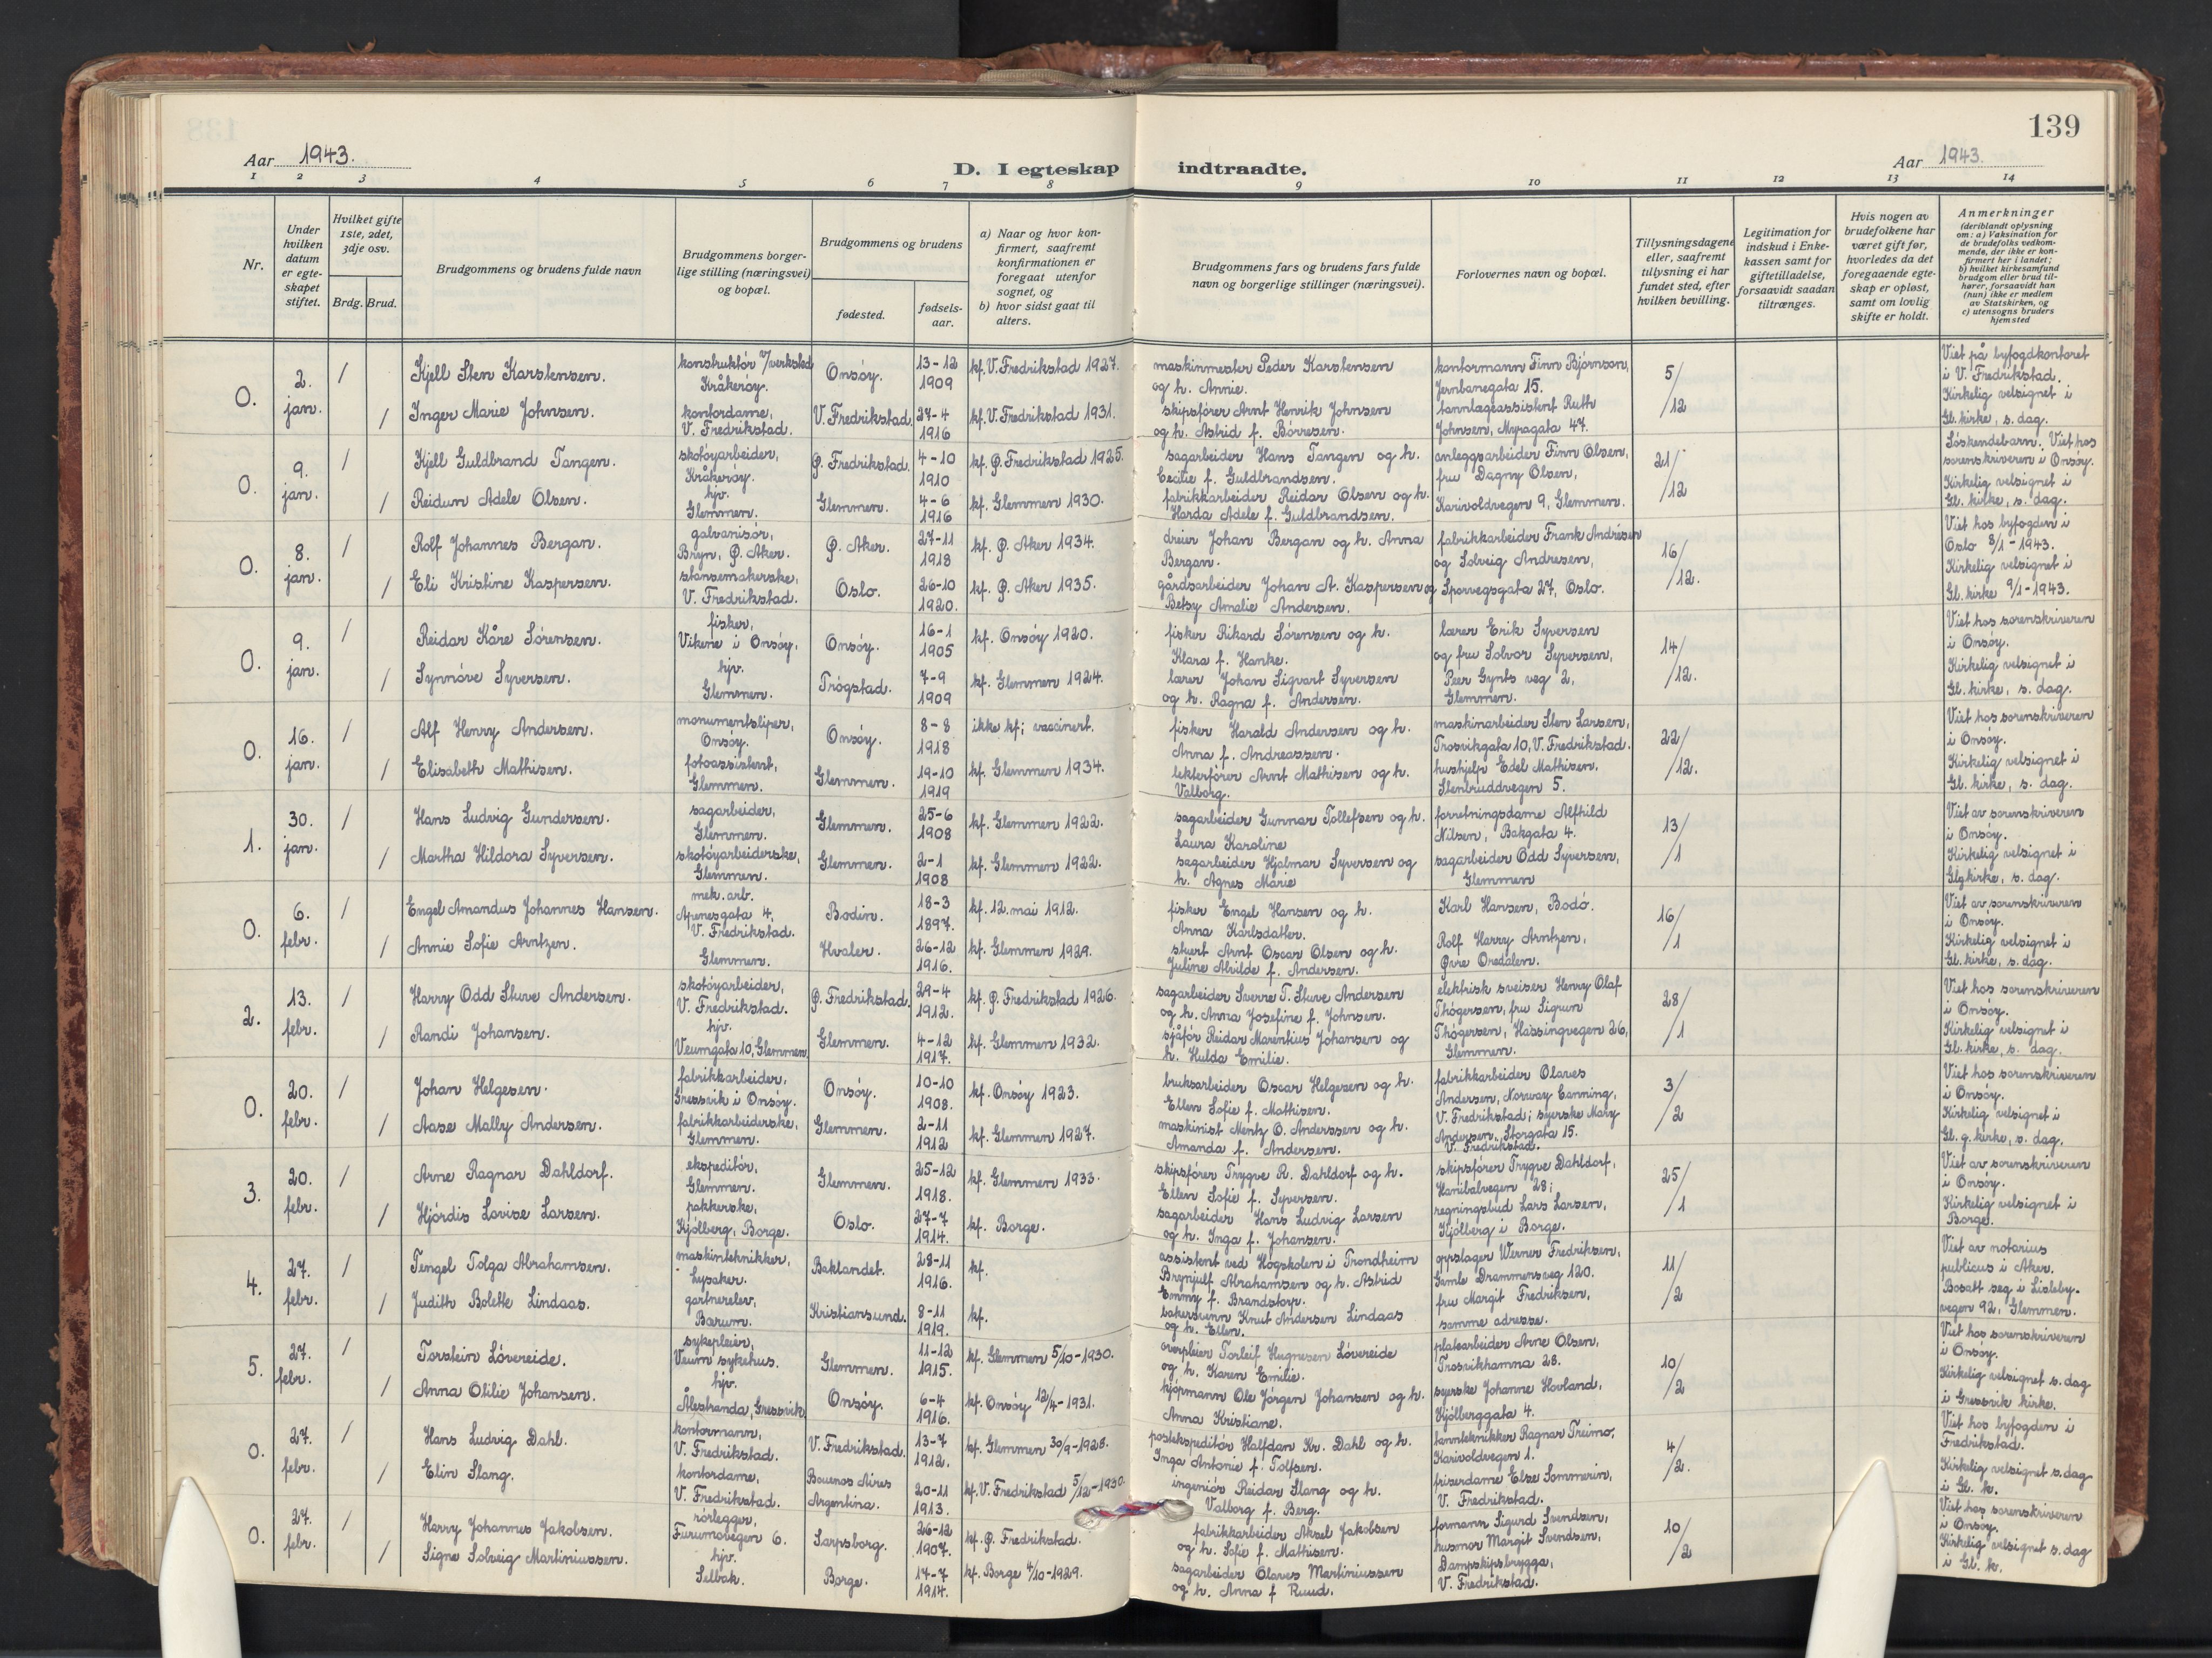 139
Aar 1943.
D. I egteskap indtraadte.
Aar 1943.
1 2 3 4 5 6 7 8 9 10 11 12 13 14
Nr.
Under hvilken datum er egteskapet stiftet.
Hvilket gifte 1ste, 2det, 3dje osv.
Brdg. Brud.
Brudgommens og brudens fulde navn
Brudgommens borgerlige stilling (næringsvei) og bopæl.
Brudgommens og brudens
fødested.
fødselsaar.
a) Naar og hvor konfirmert, saafremt konfirmationen er foregaat utenfor sognet, og
b) hvor sidst gaat til alters.
Brudgommens fars og brudens fars fulde navn og borgerlige stillinger (næringsvei).
Forlovernes navn og bopæl.
Tillysningsdagene eller, saafremt tillysning ei har fundet sted, efter hvilken bevilling.
Legitimation for indskud i Enkekassen samt for giftetilladelse, forsaavidt saadan tiltrænges.
Hvis nogen av brudefolkene har været gift før, hvorledes da det foregaaende egteskap er opløst, samt om lovlig skifte er holdt.
Anmerkninger (deriblandt oplysning om: a) Vaksination for de brudefolks vedkommende, der ikke er konfirmert her i landet; b) hvilket kirkesamfund brudgom eller brud tilhører, forsaavidt han (hun) ikke er medlem av Statskirken, og c) utensogns bruders hjemsted
0. 2. jan. 1 Kjell Sten Karstensen. konstruktør v/verksted Kråkerøy. Onsøy. 13-12 1909 kf. V. Fredrikstad 1927. maskinmester Peder Karstensen og h. Annie. kontormann Finn Bjørnson, Jernbanegata 15. 5/12 Viet på byfogdkontoret i V. Fredrikstad.
1 Inger Marie Johnsen. kontordame, V. Fredrikstad. V. Fredrikstad. 27-4 1916 kf. V. Fredrikstad 1931. skipsfører Arnt Henrik Johnsen og h. Astrid f. Børresen. tannlægeassistent Ruth Johnsen, Myragata 47. Kirkelig velsignet i Gl. kirke, s. dag.
0. 9. jan. 1 Kjell Guldbrand Tangen. skotøyarbeider, Kråkerøy. Ø. Fredrikstad. 4-10 1910 kf. Ø. Fredrikstad 1925. sagarbeider Hans Tangen og h. Cecilie f. Guldbrandsen. anleggsarbeider Finn Olsen, fru Dagny Olsen, 21/12 Søskendebarn. Viet hos sorenskriveren i Onsøy.
1 Reidun Adele Olsen. hjv. Glemmen. Glemmen. 4-6 1916 kf. Glemmen 1930. fabrikkarbeider Reidar Olsen og h. Harda Adele f. Guldbrandsen. Karivoldvegen 9, Glemmen. Kirkelig velsignet i Gl. kirke, s. dag.
0. 8. jan. 1 Rolf Johannes Bergan. galvanisør, Bryn, Ø. Aker. Ø. Aker. 27-11 1918 kf. Ø. Aker 1934. dreier Johan Bergan og h. Anna Bergan. fabrikkarbeider Frank Andrésen og Solveig Andresen, 16/12. Viet hos byfogden i Oslo 8/1-1943.
1 Eli Kristine Kaspersen. stansemakerske, V. Fredrikstad. Oslo. 26-10 1920. kf. Ø. Aker 1935. gårdsarbeider Johan A. Kaspersen og Betsy Amalie Andersen. Sporvegsgata 27, Oslo. Kirkelig velsignet i Gl. kirke 9/1-1943.
0. 9. jan. 1 Reidar Kåre Sørensen. fisker, Vikene i Onsøy. Onsøy. 16-1 1905 kf. Onsøy 1920. fisker Rikard Sørensen og h. Klara f. Hanke. lærer Erik Syversen og fru Solvor Syversen, 14/12. Viet hos sorenskriveren i Onsøy.
1 Synnøve Syversen. hjv. Glemmen. Trøgstad. 7-9 1909 kf. Glemmen 1924. lærer Johan Sigvart Syversen og h. Ragna f. Andersen. Peer Gynts veg 2, Glemmen. Kirkelig velsignet i Gl. kirke, s. dag.
0. 16. jan. 1 Alf Henry Andersen. monumentsliper, Onsøy. Onsøy. 8-8 1918 ikke kf; vaccinert. fisker Harald Andersen og h. Anna f. Andreassen. maskinarbeider Sten Larsen, Trosvikgata 10, V. Fredrikstad. 22/12. Viet hos sorenskriveren i Onsøy.
1 Elisabeth Mathisen. fotoassistent, Glemmen. Glemmen. 19-10 1919 kf. Glemmen 1934. lekterfører Arnt Mathisen og h. Valborg. hushjelp Edel Mathisen, Stenbruddvegen 5. Kirkelig velsignet i Gl. kirke, s. dag.
1. 30. jan. 1 Hans Ludvig Gundersen. sagarbeider, Glemmen. Glemmen. 25-6 1908 kf. Glemmen 1922. sagarbeider Gunnar Tollefsen og h. Laura Karoline forretningsdame Alfhild Nilsen, Bakgata 4. 13/1 Viet av sorenskriveren i Onsøy.
1 Martha Hildora Syversen. skotøyarbeiderske, Glemmen. Glemmen. 2-1 1908 kf. Glemmen 1922. sagarbeider Hjalmar Syversen og h. Agnes Marie sagarbeider Odd Syversen, Glemmen Kirkelig velsignet i Gl.g.kirke, s. dag.
0. 6. febr. 1 Engel Amandus Johannes Hansen. mek. arb. Apenesgata 4, V. Fredrikstad. Bodin. 18-3 1897. kf. 12. mai 1912. fisker Engel Hansen og h. Anna Karlsdatter. Karl Hansen, Bodø. 16/1 Viet av sorenskriveren i Onsøy.
1 Annie Sofie Arntzen. Glemmen. Hvaler. 26-12 1916. kf. Glemmen 1929. stuert Arnt Oscar Olsen og h. Juline Alvilde f. Andersen. Rolf Harry Arntzen, Øvre Oredalen. Kirkelig velsignet i Gl. kirke, s. dag.
2. 13. febr. 1 Harry Odd Stuve Andersen. skotøyarbeider, V. Fredrikstad. Ø. Fredrikstad. 29-4 1912. kf. Ø. Fredrikstad 1926. sagarbeider Sverre T. Stuve Andersen og h. Anna Josefine f. Johnsen. elektrisk sveiser Henry Olaf Thøgersen, fru Sigrun 28/1 Viet hos sorenskriveren i Onsøy.
1 Randi Johansen. hjv. Veumgata 10, Glemmen. Glemmen. 4-12 1917. kf. Glemmen 1932. sjåfør Reidar Marentius Johansen og h. Hulda Emilie. Thøgersen, Hassingvegen 26, Glemmen. Kirkelig velsignet i Gl. kirke, s. dag.
0. 20. febr. 1 Johan Helgesen. fabrikkarbeider, Gressvik i Onsøy. Onsøy. 10-10 1908. kf. Onsøy 1923. bruksarbeider Oscar Helgesen og h. Ellen Sofie f. Mathisen. fabrikkarbeider Olaves Andersen, Norway Canning, 3/2 Viet hos sorenskriveren i Onsøy.
1 Aase Mally Andersen. fabrikkarbeiderske, Glemmen. Glemmen. 2-11 1912 kf. Glemmen 1927. maskinist Mentz O. Anderssen og h. Amanda f. Andersen. V. Fredrikstad; syerske Mary Andersen, Storgata 15. V. Fredrikstad. Kirkelig velsignet i Gl. g. kirke, s. dag.
3. 20. febr. 1 Arne Ragnar Dahldorf. ekspeditør, Glemmen. Glemmen. 25-12 1918. kf. Glemmen 1933. skipsfører Trygve R. Dahldorf og h. Ellen Sofie f. Syversen. skipsfører Trygve Dahldorf, Hanibalvegen 28; 25/1 Viet av sorenskriveren i Onsøy.
1 Hjørdis Lovise Larsen. pakkerske, Kjølberg, Borge. Oslo. 27-7 1914. kf. Borge. sagarbeider Hans Ludvig Larsen og h. Inga f. Johansen. regningsbud Lars Larsen, Kjølberg i Borge. Kirkelig velsignet i Borge.
4. 27. febr. 1 Tengel Tolga Abrahamsen. maskintekniker, Lysaker. Baklandet. 28-11 1916. kf. assistent ved Høgskolen i Trondheim Brynjulf Abrahamsen og h. Astrid Emmy f. Brandstorp. oppslager Werner Fredriksen, Gamle Drammensveg 120. 11/2 Viet av notarius publicus i Aker.
1 Judith Bolette Lindaas. gartnerelev, Bærum. Kristiansund. 8-11 1919. kf. bakersvenn Knut Andersen Lindaas og h. Ellen. fru Margit Fredriksen, samme adresse. Bosatt seg i Lislebyvegen 92, Glemmen.
5. 27. febr. 1 Torstein Løvereide. sykepleier, Veum sykehus. Glemmen. 11-12 1915. kf. Glemmen 5/10-1930. overpleier Torleif Hugnesen Løvereide og h. Karen Emilie. platearbeider Arne Olsen, Trosvikhamna 28. 10/2 Viet hos sorenskriveren i Onsøy.
1 Anna Otilie Johansen. hjv. Ålestranda, Gressvik. Onsøy. 6-4 1916. kf. Onsøy 12/4-1931. kjørmann Ole Jørgen Johansen og h. Anna Kristiane. syerske Johanne Hovland, Kjølberggata 4. Kirkelig velsignet s. dag i Gressvik kirke.
0. 27. febr. 1 Hans Ludvig Dahl. kontormann, V. Fredrikstad. V. Fredrikstad. 13-7 1912. kf. Glemmen 30/9-1928. postekspeditør Halfdan Kr. Dahl og h. Inga Antonie f. Tolfsen. tanntekniker Ragnar Treimo, Karivoldvegen 1. 4/2. Viet hos byfogden i Fredrikstad.
1 Elin Slang. kontordame, V. Fredrikstad. Bouenos Aires Argentina. 20-11 1913. kf. V. Fredrikstad 5/12-1930. ingeniør Reidar Slang og h. Valborg f. Berg. friserdame Else Sommerin, V. Fredrikstad. Kirkelig velsignet s. dag i Gl. k.
0. 27. febr. 1 Harry Johannes Jakobsen. rørlegger, Furumovegen 6. Sarpsborg. 26-12 1907. kf. Ø. Fredrikstad. fabrikkarbeider Aksel Jakobsen og h. Sofie f. Mathisen. formann Sigurd Svendsen, husmor Margit Svendsen, 10/2 Viet hos sorenskriveren i Onsøy.
1 Signe Solveig Martiniussen. hjv. Selbak. Borge. 17-7 1914. kf. Borge 4/10-1929. sagarbeider Olaves Martiniussen og h. Anna f Ruud. Dampskipsbrygga, V. Fredrikstad. Kirkelig velsignet s. dag i Gl. k.